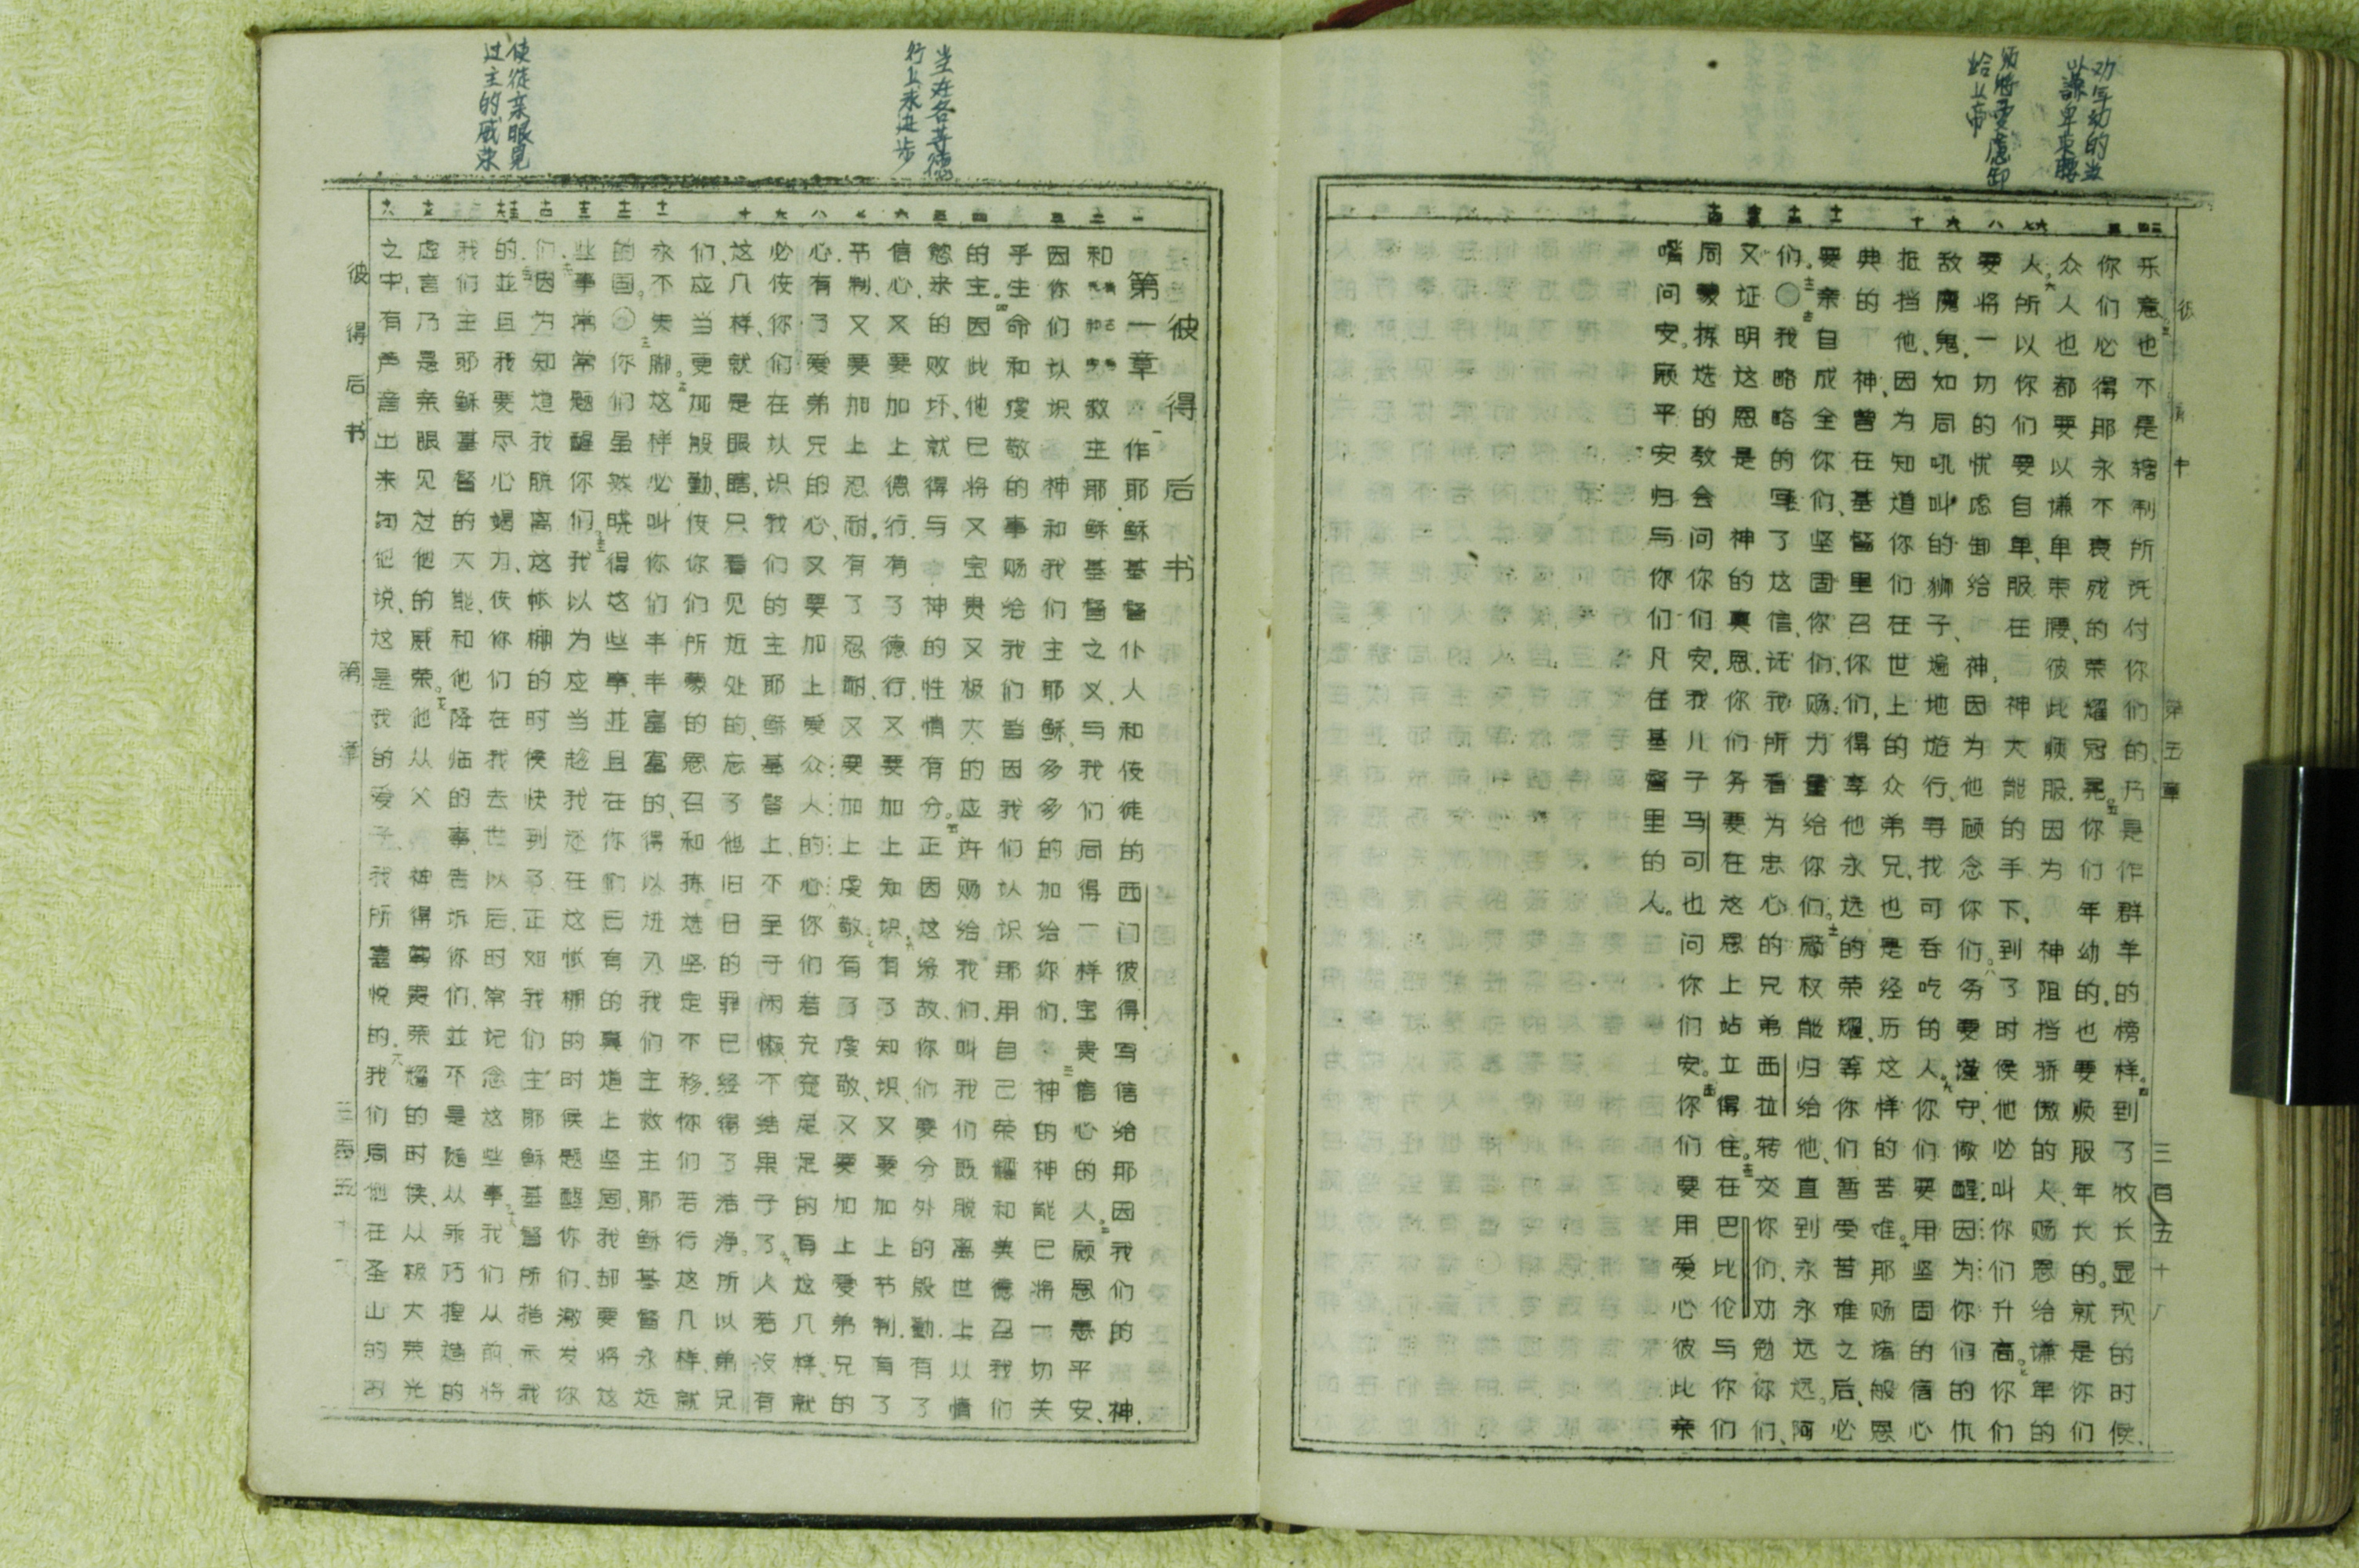 劝年幼的当
以谦卑束腰
须将忧虑卸
给上帝
乐意也不是辖制所托付你们的、乃是作群羊的榜样。四到了牧长显现的时候、
你们必得那永不衰残的荣耀冠冕。五你们年幼的.也要顺服年长的。就是你们
众人也都要以谦卑束腰、彼此顺服.因为神阻挡骄傲的人、赐恩给谦卑的
人。六所以你们要自卑、服在神大能的手下、到了时候他必叫你们升高。七你们
要将一切的忧虑卸给神、因为他顾念你们。八务要谨守、儆醒.因为你们的仇
敌魔鬼、如同吼叫的狮子、遍地游行、寻找可吞吃的人。九你们要用坚固的信心
抵挡他、因为知道你们在世上的众弟兄、也是经历这样的苦难。十那赐诸般恩
典的神、曾在基督里召你们、得享他永远的荣耀、等你们暂受苦难之后、必
要亲自成全你们、坚固你们、赐力量给你们。十一愿权能归给他、直到永永远远。阿
们。十二〇我略略的写了这信、托我所看为忠心的兄弟西拉转交你们、劝勉你们、
又证明这恩是神的真恩.你们务要在这恩上站得住。十三在巴比伦与你们
同蒙拣选的教会问你们安.我儿子马可也问你们安。十四你们要用爱心彼此亲
嘴问安。愿平安归与你们凡在基督里的人。
第五章
三百五十
当在各等德
行上求进步
使徒亲眼见
过主的威荣
彼得后书
第一章 一作耶稣基督仆人和使徒的西门彼得、写信给那因我们的神、
和救主耶稣基督之义、与我们同得一样宝贵信心的人。二愿恩惠平安、
因你们认识神和我们主耶稣、多多的加给你们.三神的神能已将一切关
乎生命和虔敬的事赐给我们、皆因我们认识那用自己荣耀和美德召我们
的主。四因此他已将又宝贵又极大的应许赐给我们、叫我们既脱离世上从情
慾来的败坏、就得与神的性情有分。五正因这缘故、你们要分外的殷勤.有了
信心、又要加上德行.有了德行、又要加上知识.六有了知识、又要加上节制.有了
节制、又要加上忍耐.有了忍耐、又要加上虔敬.七有了虔敬、又要加上爱弟兄的
心.有了爱弟兄的心、又要加上爱众人的心.八你们若充充足足的有这几样、就
必使你们在认识我们的主耶稣基督上、不至于闲懒不结果子了。九人若没有
这几样、就是眼瞎、只看见近处的、忘了他旧日的罪已经得洁净。十所以弟兄
们、应当更加殷勤、使你们所蒙的恩召和拣选坚定不移.你们若行这几样、就
永不失脚。十一这样必叫你们丰丰富富的、得以进入我们主救主耶稣基督永远
的国。十二〇你们虽然晓得这些事、並且在你们已有的真道上坚固、我却要将这
些事常常题醒你们。十三我以为应当趁我还在这帐棚的时候题醒你们、激发你
们.十四因为知道我脱离这帐棚的时候快到了、正如我们主耶稣基督所指示我
的.十五並且我要尽心竭力、使你们在我去世以后、时常记念这些事。十六我们从前将
我们主耶稣基督的大能、和他降临的事、告诉你们、並不是随从乖巧捏造的
虚言、乃是亲眼见过他的威荣。十七他从父神得尊贵荣耀的时候、从极大荣光
之中、有声音出来向他说、这是我的爱子、我所喜悦的.十八我们同他在圣山的
彼得后书
第一章